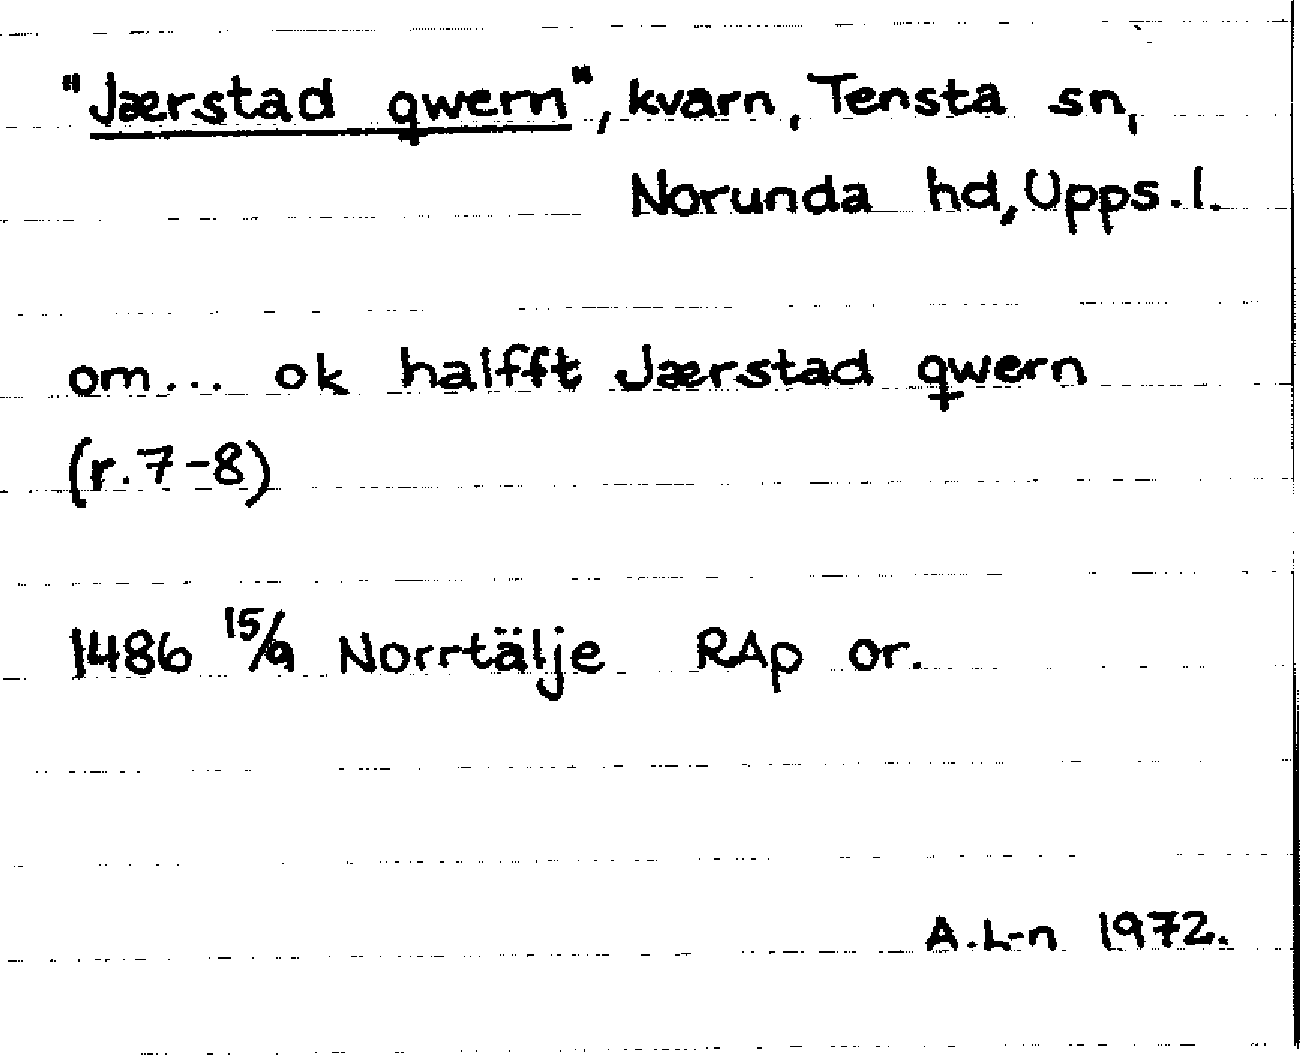 "Jærstad qwern", kvarn, Tensta sn,
Norunda hd, Upps.l.
om... ok halfft Jærstad qwern
(r.7-8)
1486 15/9 Norrtälje RAp or.
A.L-n 1972.